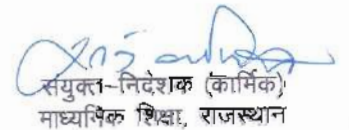 संयुक्त-निदेशक (कार्मिक)
माध्यमिक शिक्षा, राजस्थान